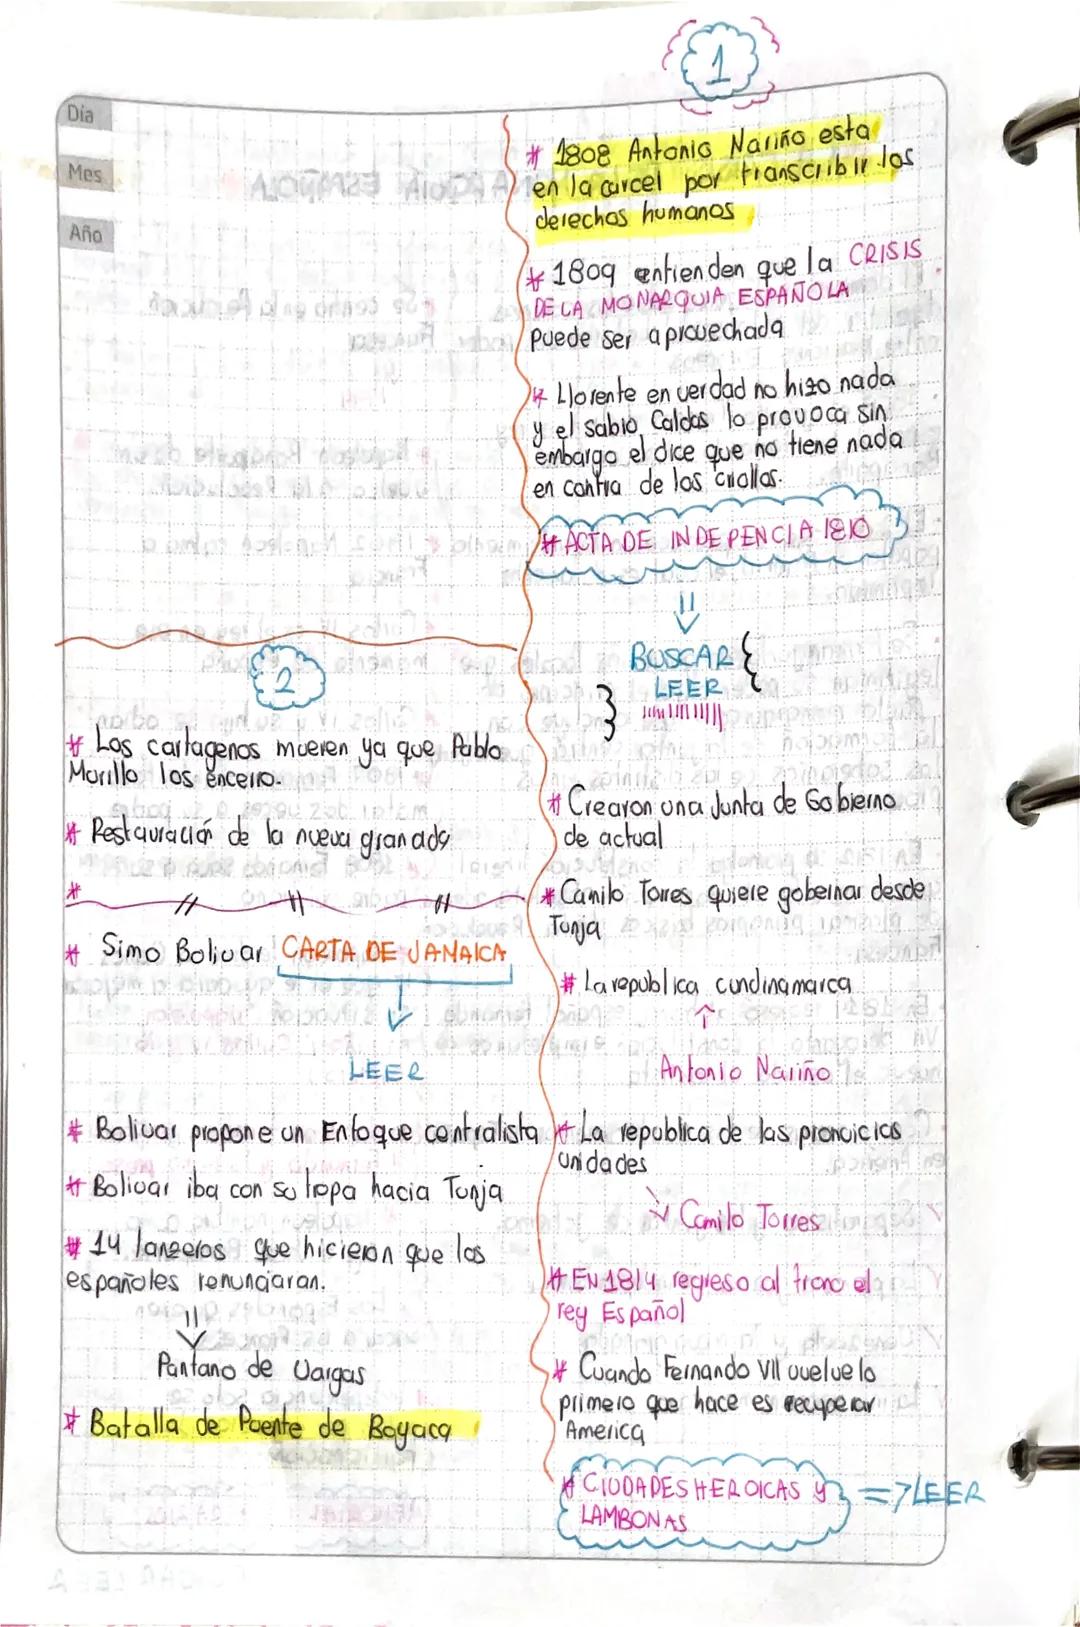 Día
Mes
Año
1
* 1808 Antonio Nariño esta
en la carcel por transcribir los
derechos humanos
* 1809 entienden que la CRISIS
DE LA MONARQUIA ESPAÑOLA
Puede ser aprovechada
* Llorente en verdad no hizo nada
y el sabio Caldas lo provoca sin
embargo el dice que no tiene nada
en contra de los criollos.
* ACTA DE INDEPENCIA 1810
BUSCAR
LEER
* Crearon una Junta de Gobierno
de actual
* Camilo Torres quiere gobernar desde
Tunja
* La republica cundinamarca
Antonio Nariño
* La republica de las pronvicias
unidades
Camilo Torres
* EN 1814 regreso al trono el
rey Español
* Cuando Fernando VII vuelve lo
primero que hace es recuperar
America
* CIUDADES HEROICAS Y => LEER
LAMBONAS
2
* Los cartagenos mueren ya que Pablo
Murillo los encerro.
* Restauración de la nueva granada
*
* Simo Bolivar CARTA DE JAMAICA
LEER
* Bolivar propone un Enfoque centralista
* Bolivar iba con su tropa hacia Tunja
* 14 lanzeros que hicieron que los
españoles renunciaran.
Pantano de Vargas
* Batalla de Puente de Boyaca